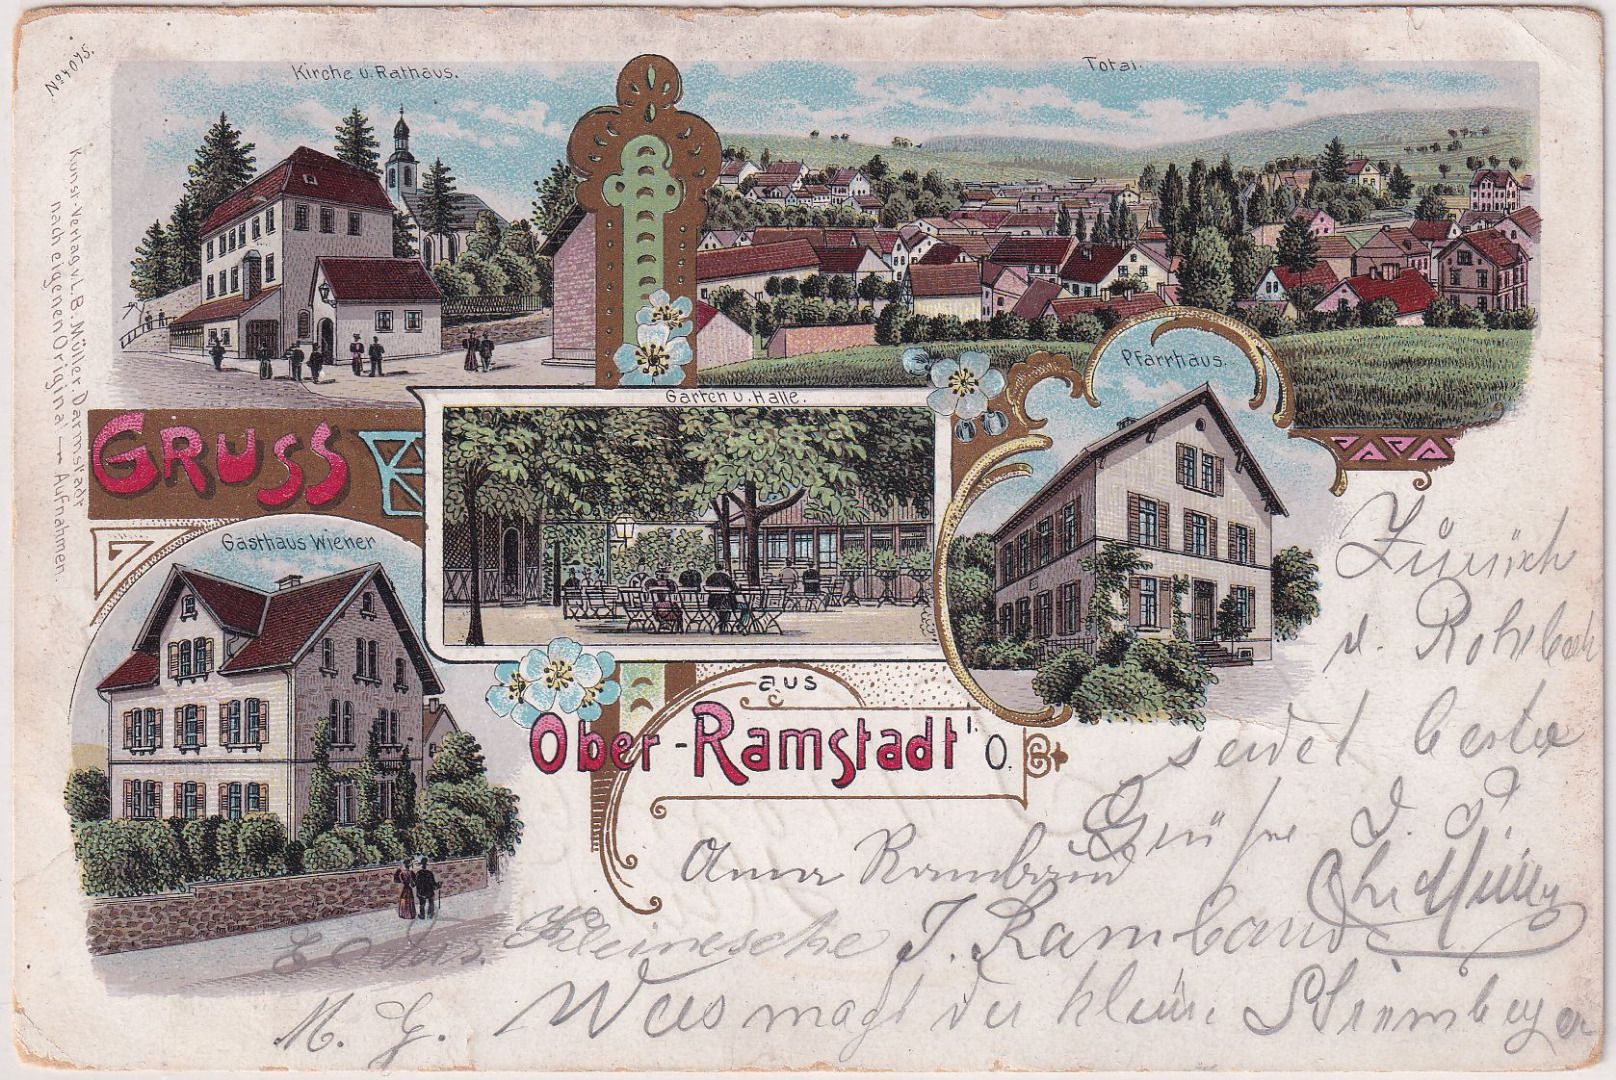 No 4075.
Kunst-Verlag v. L.B. Müller, Darmstadt
nach eigenen Original — Aufnahmen.
Kirche u. Rathaus.
Total.
Garten u. Halle.
Pfarrhaus.
GRUSS
Gasthaus Wiener
aus
Ober-Ramstadt i. O.
u. Rohrbach
sendet beste
Grüße
Anna Rambaud
J. Rambaud
M. G. Was magt der kleine